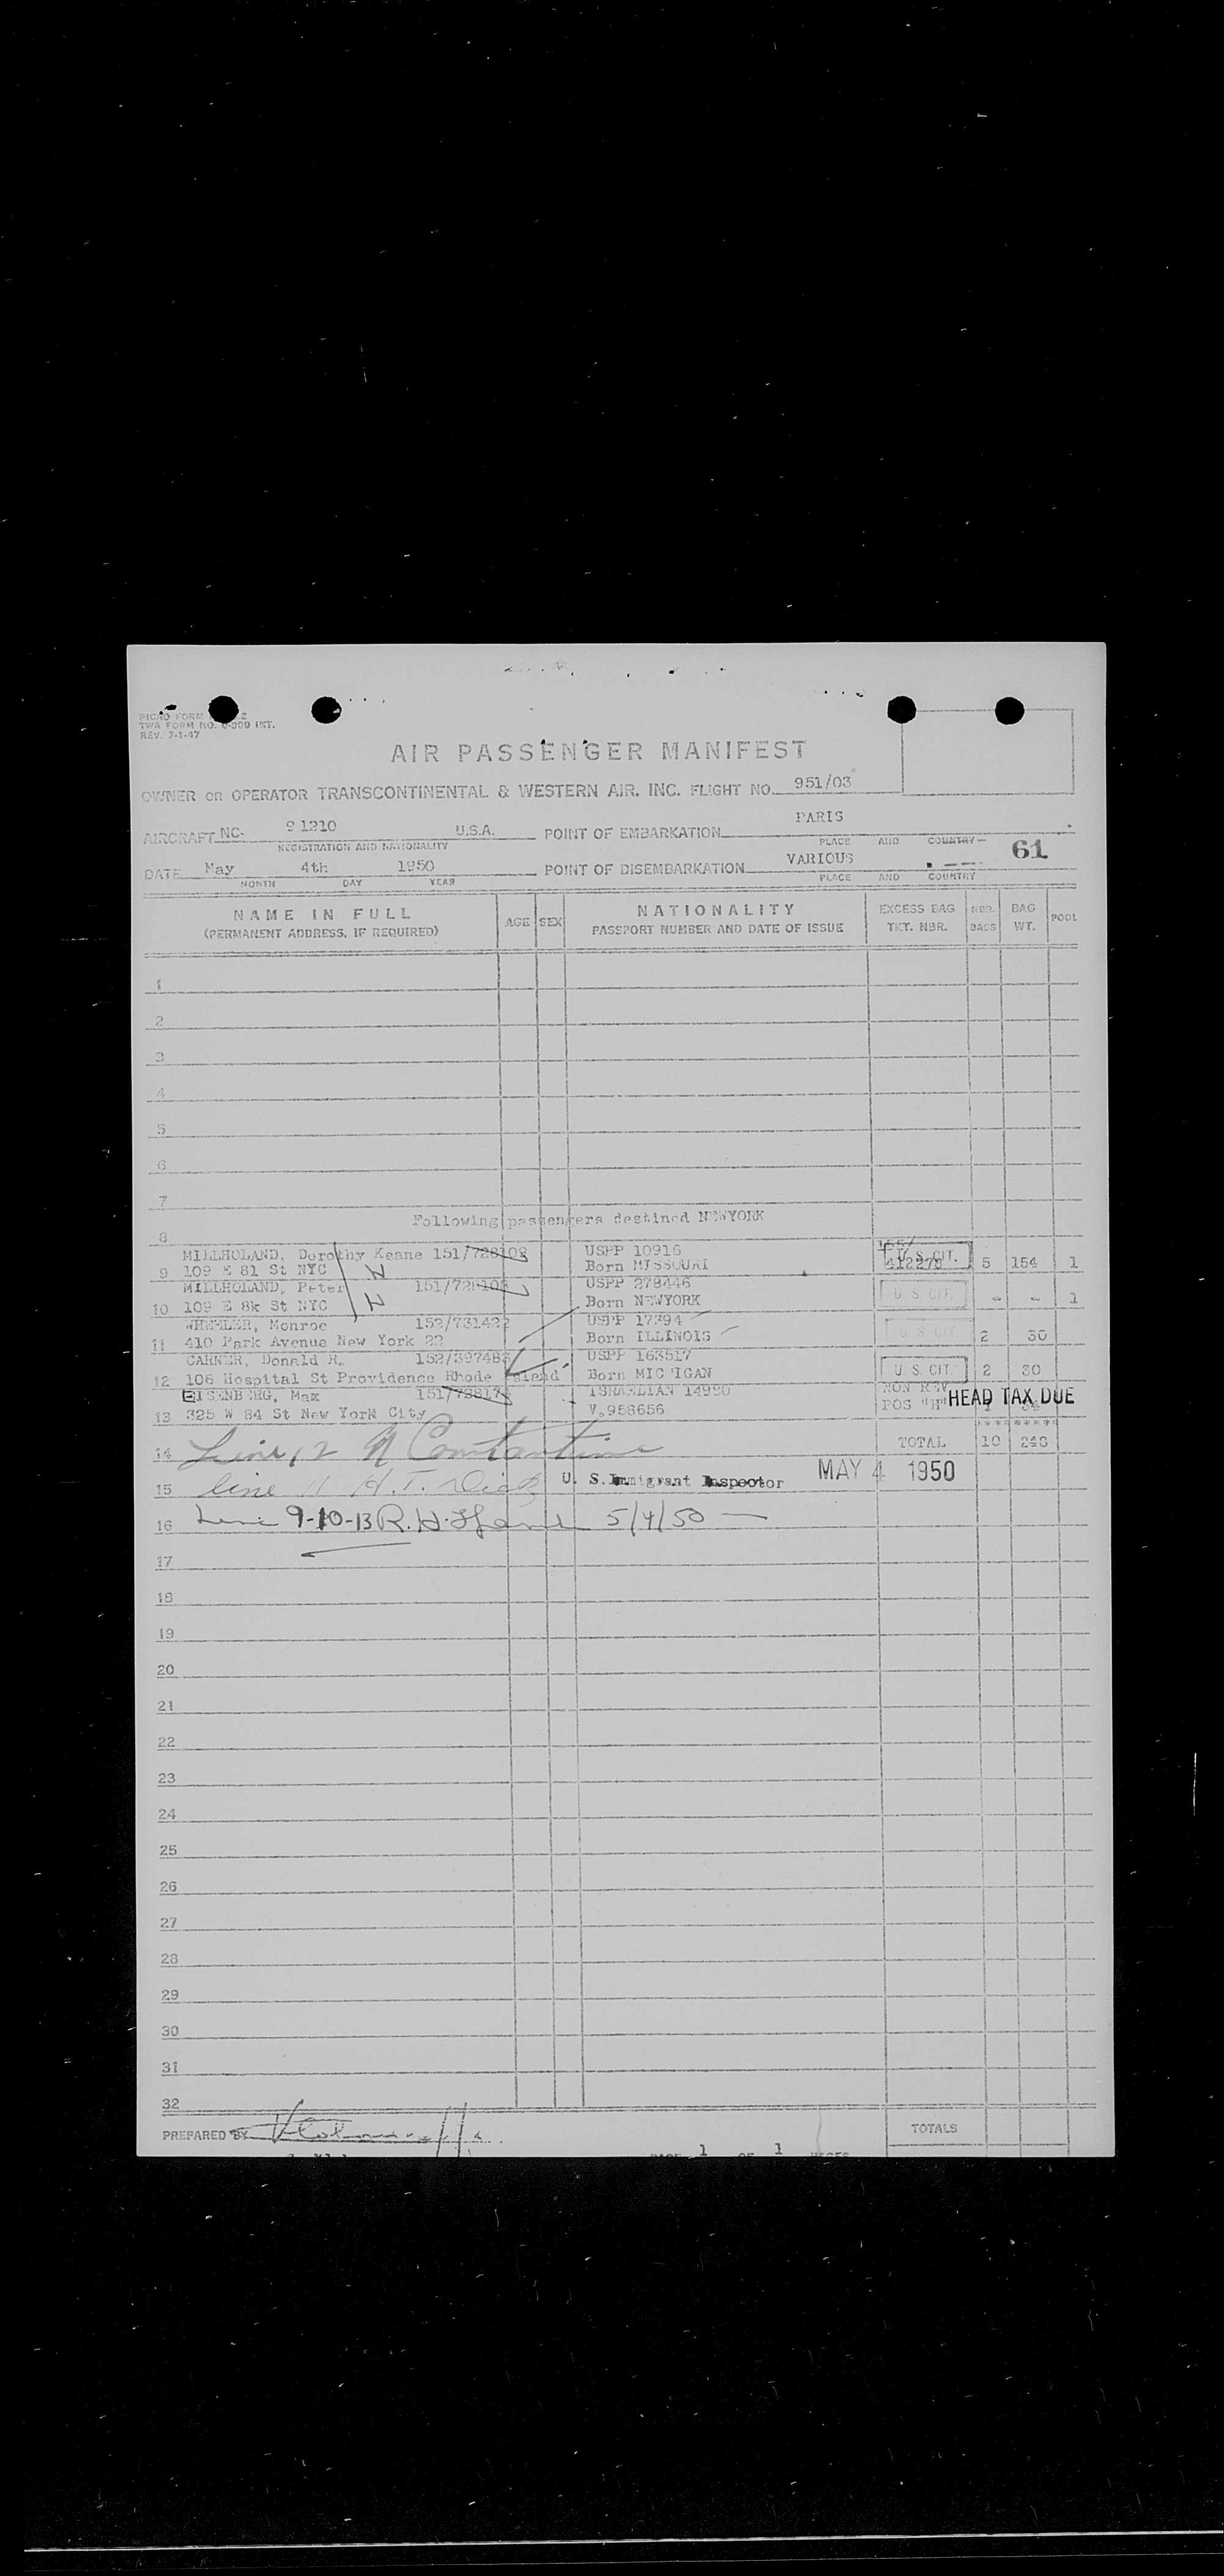 TWA FORM NO. 0-300 INT.
REV. 7-1-47
AIR PASSENGER MANIFEST
OWNER OR OPERATOR TRANSCONTINENTAL & WESTERN AIR, INC. FLIGHT NO. 951/03
AIRCRAFT NC- 91210 U.S.A. POINT OF EMBARKATION PARIS
REGISTRATION AND NATIONALITY PLACE AND COUNTRY
61
DATE May 4th 1950 POINT OF DISEMBARKATION VARIOUS
MONTH DAY YEAR PLACE AND COUNTRY
NAME IN FULL AGE SEX NATIONALITY EXCESS BAG NBR. BAG POOL
(PERMANENT ADDRESS, IF REQUIRED) PASSPORT NUMBER AND DATE OF ISSUE TKT. NBR. BAGS WT.
1
2
3
4
5
6
7
Following passengers destined NEWYORK
8
MILLHOLAND, Dorothy Keane 151/728108 USPP 10916 U. S. CIT.
9 109 E 81 St NYC Born MISSOURI 412279 5 154 1
MILLHOLAND, Peter 151/728108 USPP 278446 U. S. CIT.
10 109 E 8k St NYC Born NEWYORK - - 1
WHEELER, Monroe 152/731422 USPP 17394 U S CIT
11 410 Park Avenue New York 22 Born ILLINOIS 2 30
CARNER, Donald R. 152/397485 USPP 163517 U. S. CIT.
12 106 Hospital St Providence Rhode Island Born MIC IGAN 2 30
EISENBERG, Max 151/728174 ISRAELIAN 14990 NON REV
13 325 W 84 St New York City V.958656 POS "H" HEAD TAX DUE
*******
14 Line 12 N Constantine TOTAL 10 248
15 line 11 H.T. U. S. Immigrant Inspector MAY 4 1950
16 Line 9-10-13 R. H. 5/4/50
17
18
19
20
21
22
23
24
25
26
27
28
29
30
31
32
PREPARED BY TOTALS
PAGE 1 OF 1 PAGES